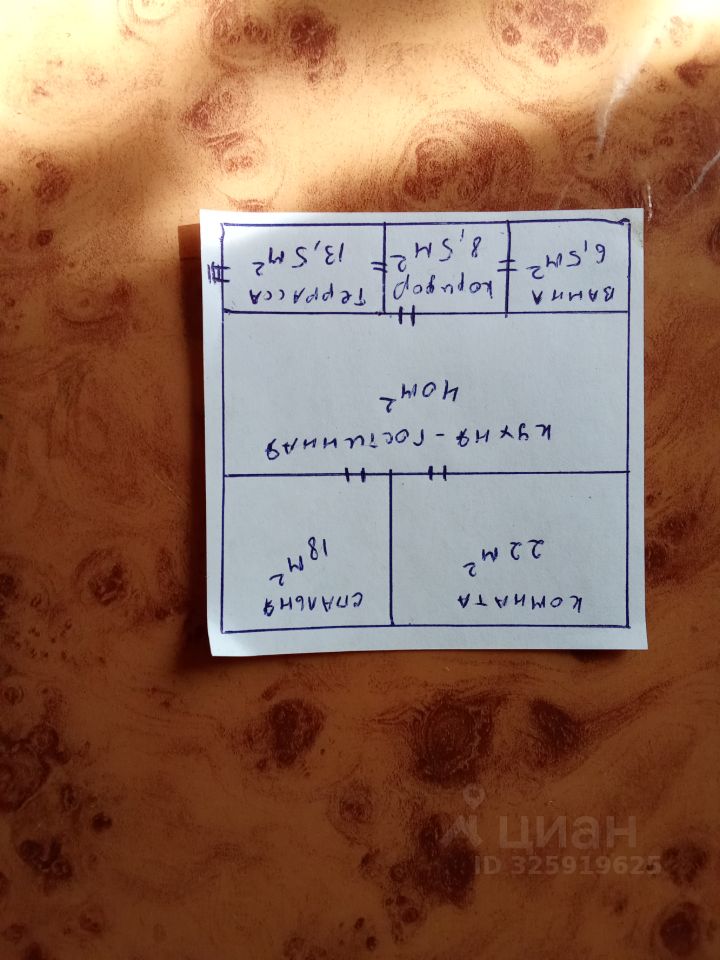 КОМНАТА
22 м²
СПАЛЬНЯ
18 м²
КУХНЯ-ГОСТИННАЯ
40м²
ВАННА
6,5м²
коридор
8,5м²
ТеррАССА
13,5м²
циан
ID 325919625